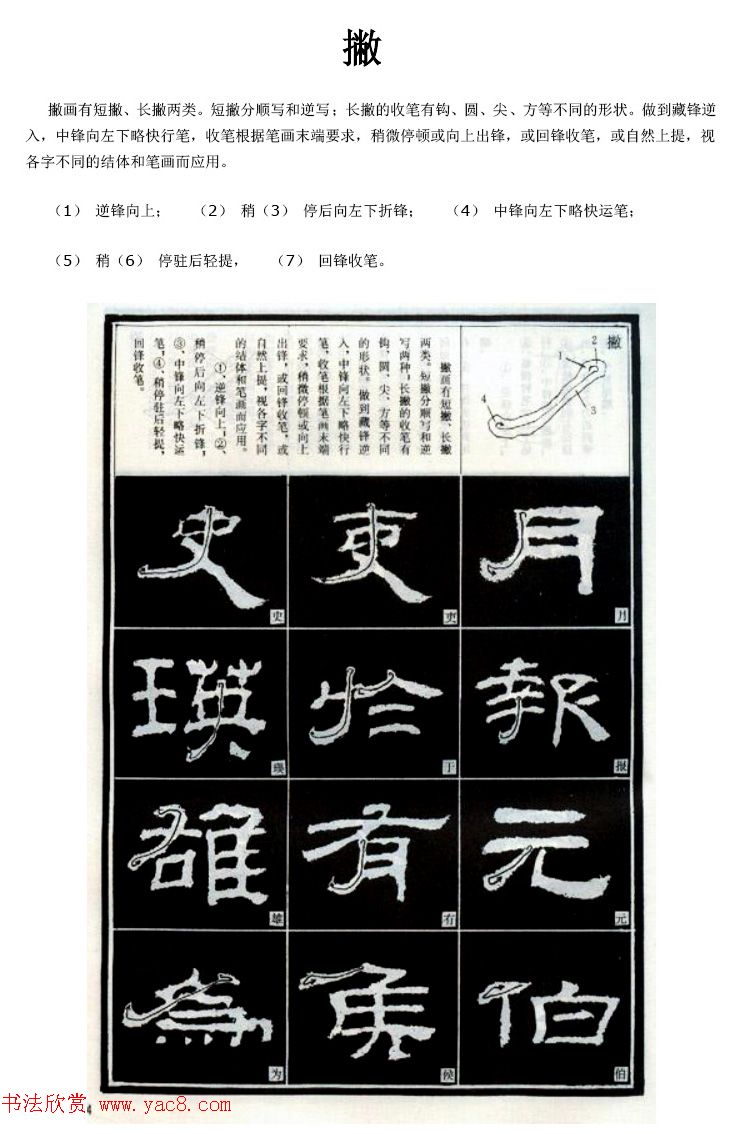 撇
撇画有短撇、长撇两类。短撇分顺写和逆写；长撇的收笔有钩、圆、尖、方等不同的形状。做到藏锋逆
入，中锋向左下略快行笔，收笔根据笔画末端要求，稍微停顿或向上出锋，或回锋收笔，或自然上提，视
各字不同的结体和笔画而应用。
（1） 逆锋向上； （2） 稍（3） 停后向左下折锋； （4） 中锋向左下略快运笔；
（5） 稍（6） 停驻后轻提， （7） 回锋收笔。
撇
1
2
3
4
撇画有短撇、长撇
两类。短撇分顺写和逆
写两种；长撇的收笔有
钩、圆、尖、方等不同
的形状。做到藏锋逆
入，中锋向左下略快行
笔，收笔根据笔画末端
要求，稍微停顿或向上
出锋，或回锋收笔，或
自然上提，视各字不同
的结体和笔画而应用。
①逆锋向上；②、
稍停后向左下折锋；
③、中锋向左下略快运
笔；④、稍停驻后轻提，
回锋收笔。
月 月
吏 吏
史 史
報 报
於 于
瑛 瑛
元 元
有 有
雄 雄
伯 伯
侯 侯
為 为
书法欣赏 www.yac8.com
4